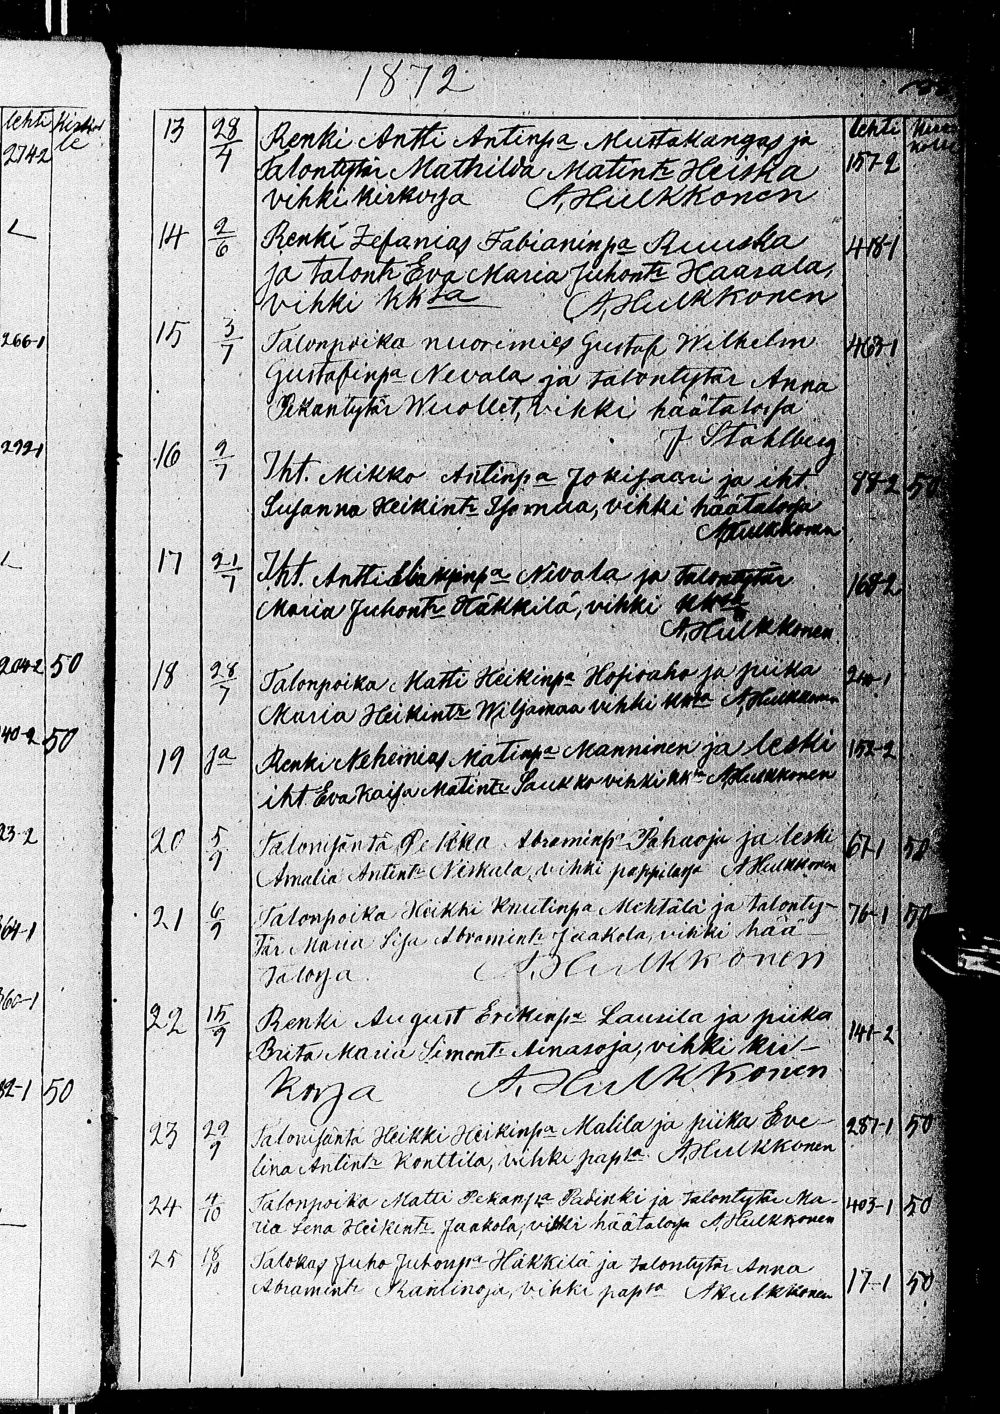 1872
lehti
2742
13 28/4 Renki Antti Antinpa Mustakangas ja lehti
Talontytär Mathilda Matintr Heiska 157-2
vihki kirkosja A, Hulkkonen
14 2/6 Renki Zefanias Fabianinpa Ruuska 418-1
ja talontr Eva Maria Juhontr Haarala,
vihki kksa A, Hulkkonen
15 3/7 Talonpoika nuorimies Gustaf Wilhelm 463-1
266-1
Gustafinpa Nevala ja talontytär Anna
Pekantytär Wuollet, vihki häätalosja
J Ståhlberg
16 2/7 Iht. Mikko Antinpa Jokisaari ja iht 88-2 50
Susanna Heikintr Isomaa, vihki häätalosja
A, Hulkkonen
17 21/7 Iht. Antti Nivala ja talontytär 168-2
Maria Juhontr Häkkilä, vihki kksa
A, Hulkkonen
204-2 50
18 28/7 Talonpoika Matti Heikinpa ja piika
Maria Heikintr Wiljamaa vihki kksa A, Hulkkonen
40-2 50
19 ja Renki Nehemias Matinpa Manninen ja leski 152-2
iht Eva Kaisa Matintr Saukko vihki kksa A Hulkkonen
23-2
20 5/9 Talonisäntä Pekka Abraminpa Pahaoja ja leski 67-1 50
Amalia Antintr Niskala, vihki pappilasja A Hulkkonen
21 6/9 Talonpoika Heikki Knutinpa Mehtälä ja talonty- 76-1 50
tär Maria Lisa Abramintr Jaakola, vihki hää-
talosja A, Hulkkonen
64-1
360-1
22 15/9 Renki August Erikinpa Laurila ja piika 141-2
Brita Maria Simontr Ainasoja, vihki kir-
kosja A, Hulkkonen
82-1 50
23 29/9 Talonisäntä Heikki Heikinpa Malila ja piika Eve- 287-1 50
lina Antintr Konttila, vihki papsa A, Hulkkonen
24 4/10 Talonpoika Matti Pekanpa Padinki ja talontytär Ma- 403-1 50
ria Lena Heikintr Jaakola, vihki häätalosja A, Hulkkonen
25 18/10 Talokas Juho Juhonpa Häkkilä ja talontytär Anna
Abramintr Kantinoja, vihki papsa A Hulkkonen 17-1 50